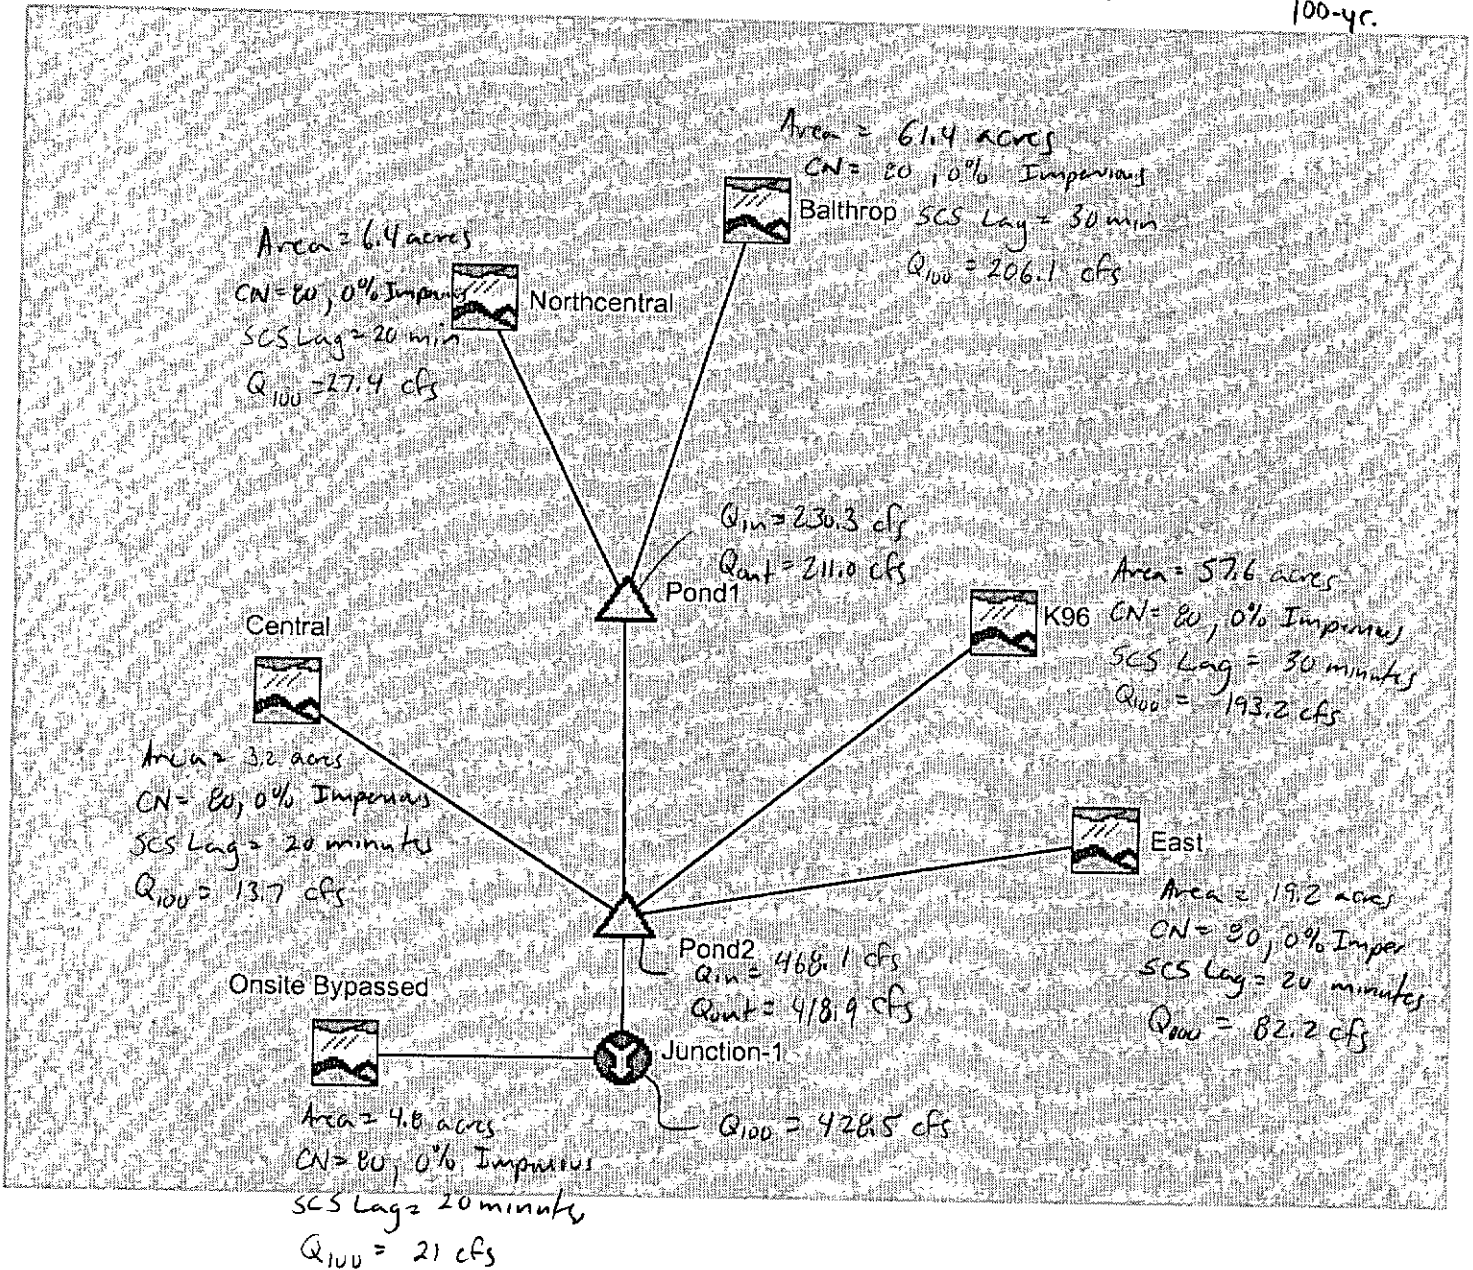 100-yr.
Area = 61.4 acres
CN = 80, 0% Impervious
Balthrop
SCS Lag = 30 min
Q100 = 206.1 cfs
Area = 6.4 acres
CN = 80, 0% Impervious
Northcentral
SCS Lag = 20 min
Q100 = 27.4 cfs
Qin = 230.3 cfs
Qout = 211.0 cfs
Pond1
Area = 57.6 acres
K96
CN = 80, 0% Impervious
SCS Lag = 30 minutes
Q100 = 193.2 cfs
Central
Area = 3.2 acres
CN = 80, 0% Impervious
SCS Lag = 20 minutes
Q100 = 13.7 cfs
East
Area = 19.2 acres
CN = 80, 0% Imper
SCS Lag = 20 minutes
Q100 = 82.2 cfs
Pond2
Qin = 468.1 cfs
Qout = 418.9 cfs
Onsite Bypassed
Junction-1
Q100 = 428.5 cfs
Area = 4.8 acres
CN = 80, 0% Impervious
SCS Lag = 20 minutes
Q100 = 21 cfs